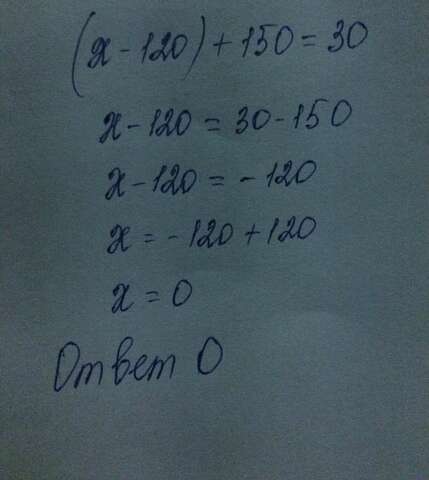 (x - 120) + 150 = 30
x - 120 = 30 - 150
x - 120 = - 120
x = - 120 + 120
x = 0
Ответ 0